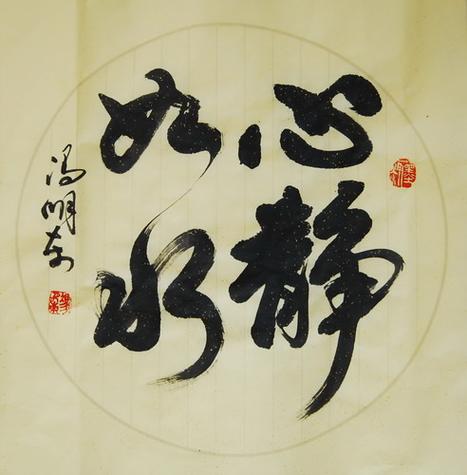 心静
如水
冯明秀